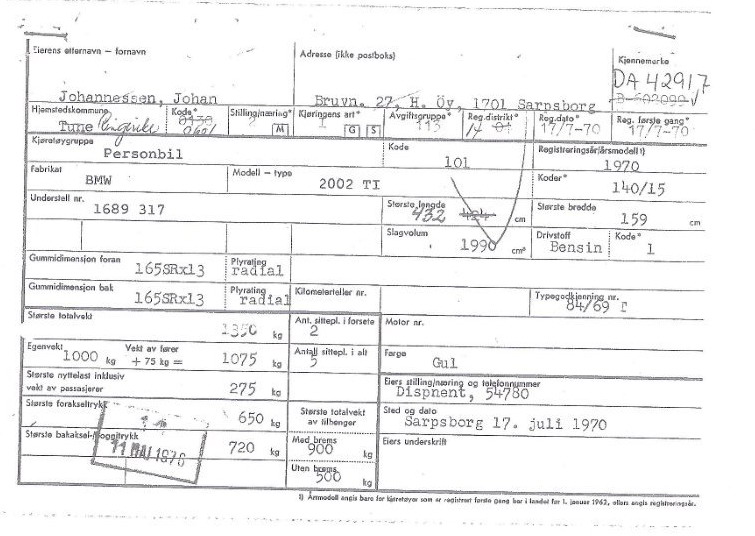 Eierens etternavn – fornavn
Adresse (ikke postboks)
Kjennemerke
DA 42917
Johannessen, Johan
Bruvn. 27, H. Öy, 1701 Sarpsborg
Hjemstedskommune
Kode*
Stilling/næring*
Kjøringens art*
Avgiftsgruppe*
Reg.distrikt*
Reg.dato*
Reg. første gang*
Tune Ringerike
0130
0601
2
M
1
G
S
113
14
01
17/7-70
17/7-70
Kjøretøygruppe
Personbil
Kode
101
Registreringsår/årsmodell 1)
1970
Fabrikat
BMW
Modell – type
2002 TI
Koder*
140/15
Understell nr.
1689 317
Største lengde
432
424
cm
Største bredde
159
cm
Slagvolum
1990
cm³
Drivstoff
Bensin
Kode*
1
Gummidimensjon foran
165SRx13
Plyrating
radial
Gummidimensjon bak
165SRx13
Plyrating
radial
Kilometerteller nr.
Typegodkjenning nr.
84/69
Største totalvekt
1350
kg
Ant. sittepl. i forsete
2
Motor nr.
Egenvekt
1000
kg
Vekt av fører
+ 75 kg =
1075
kg
Antall sittepl. i alt
5
Farge
Gul
Største nyttelast inklusiv
vekt av passasjerer
275
kg
Eiers stilling/næring og telefonnummer
Dispnent, 54780
Største forakseltrykk
650
kg
Største totalvekt
av tilhenger
Sted og dato
Sarpsborg 17. juli 1970
Største bakaksel-/boggitrykk
720
kg
Med brems
900
kg
Eiers underskrift
11 MAI 1976
Uten brems
500
kg
1) Årmodell angis bare for kjøretøyer som er registrert første gang her i landet før 1. januar 1962, ellers angis registreringsår.